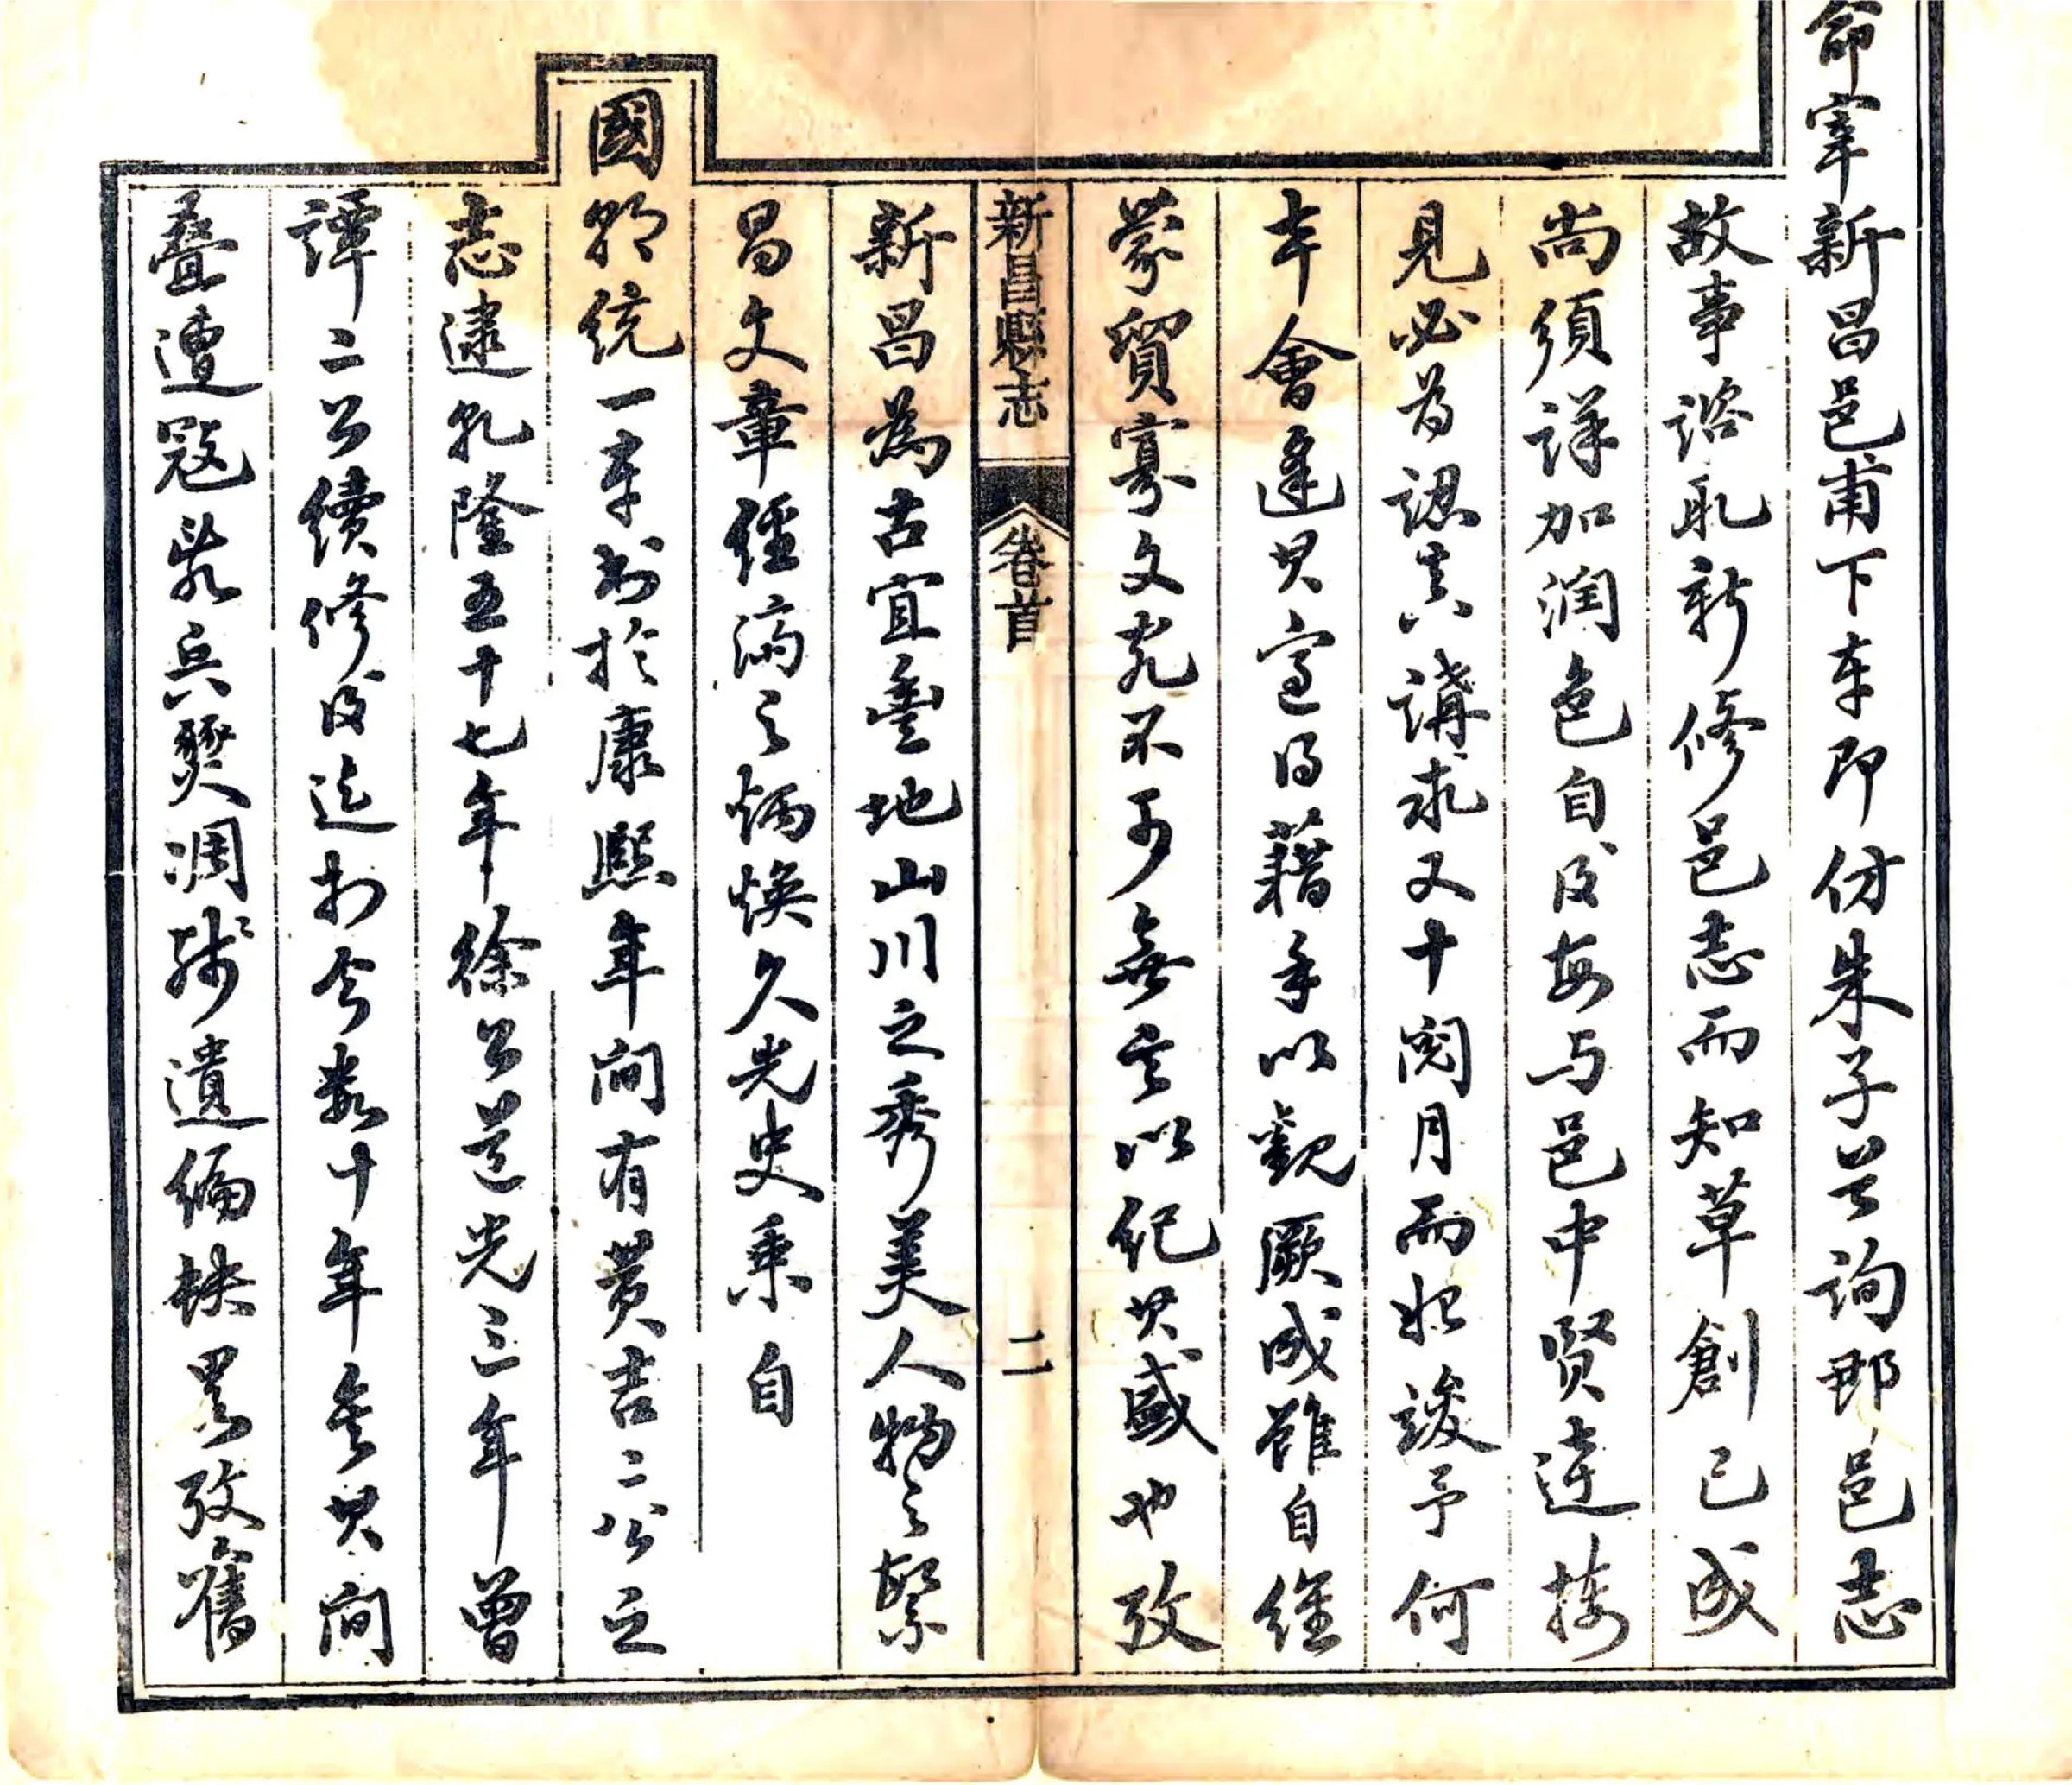 命宰新昌邑甫下車即仿朱子首詢郡邑志
故事諮取新修邑志而知草創已成
尚須詳加润色自後每与邑中贤達接
見必为認真講求又十閱月而始竣予何
幸會逢其適得藉手以觀厥成雖自維
蒙質寡文究不可無言以紀其盛也攷
新昌縣志 卷首 二
新昌為古宜豐地山川之秀美人物之繁
昌文章經濟之炳煥久光史乘自
國朝統一車書於康熙年间有黄吉二公之
志逮乾隆五十七年徐公道光三年曾
譚二公續修後迄於今数十年矣其间
叠遭寇氛兵燹凋残遺編缺畧攷舊